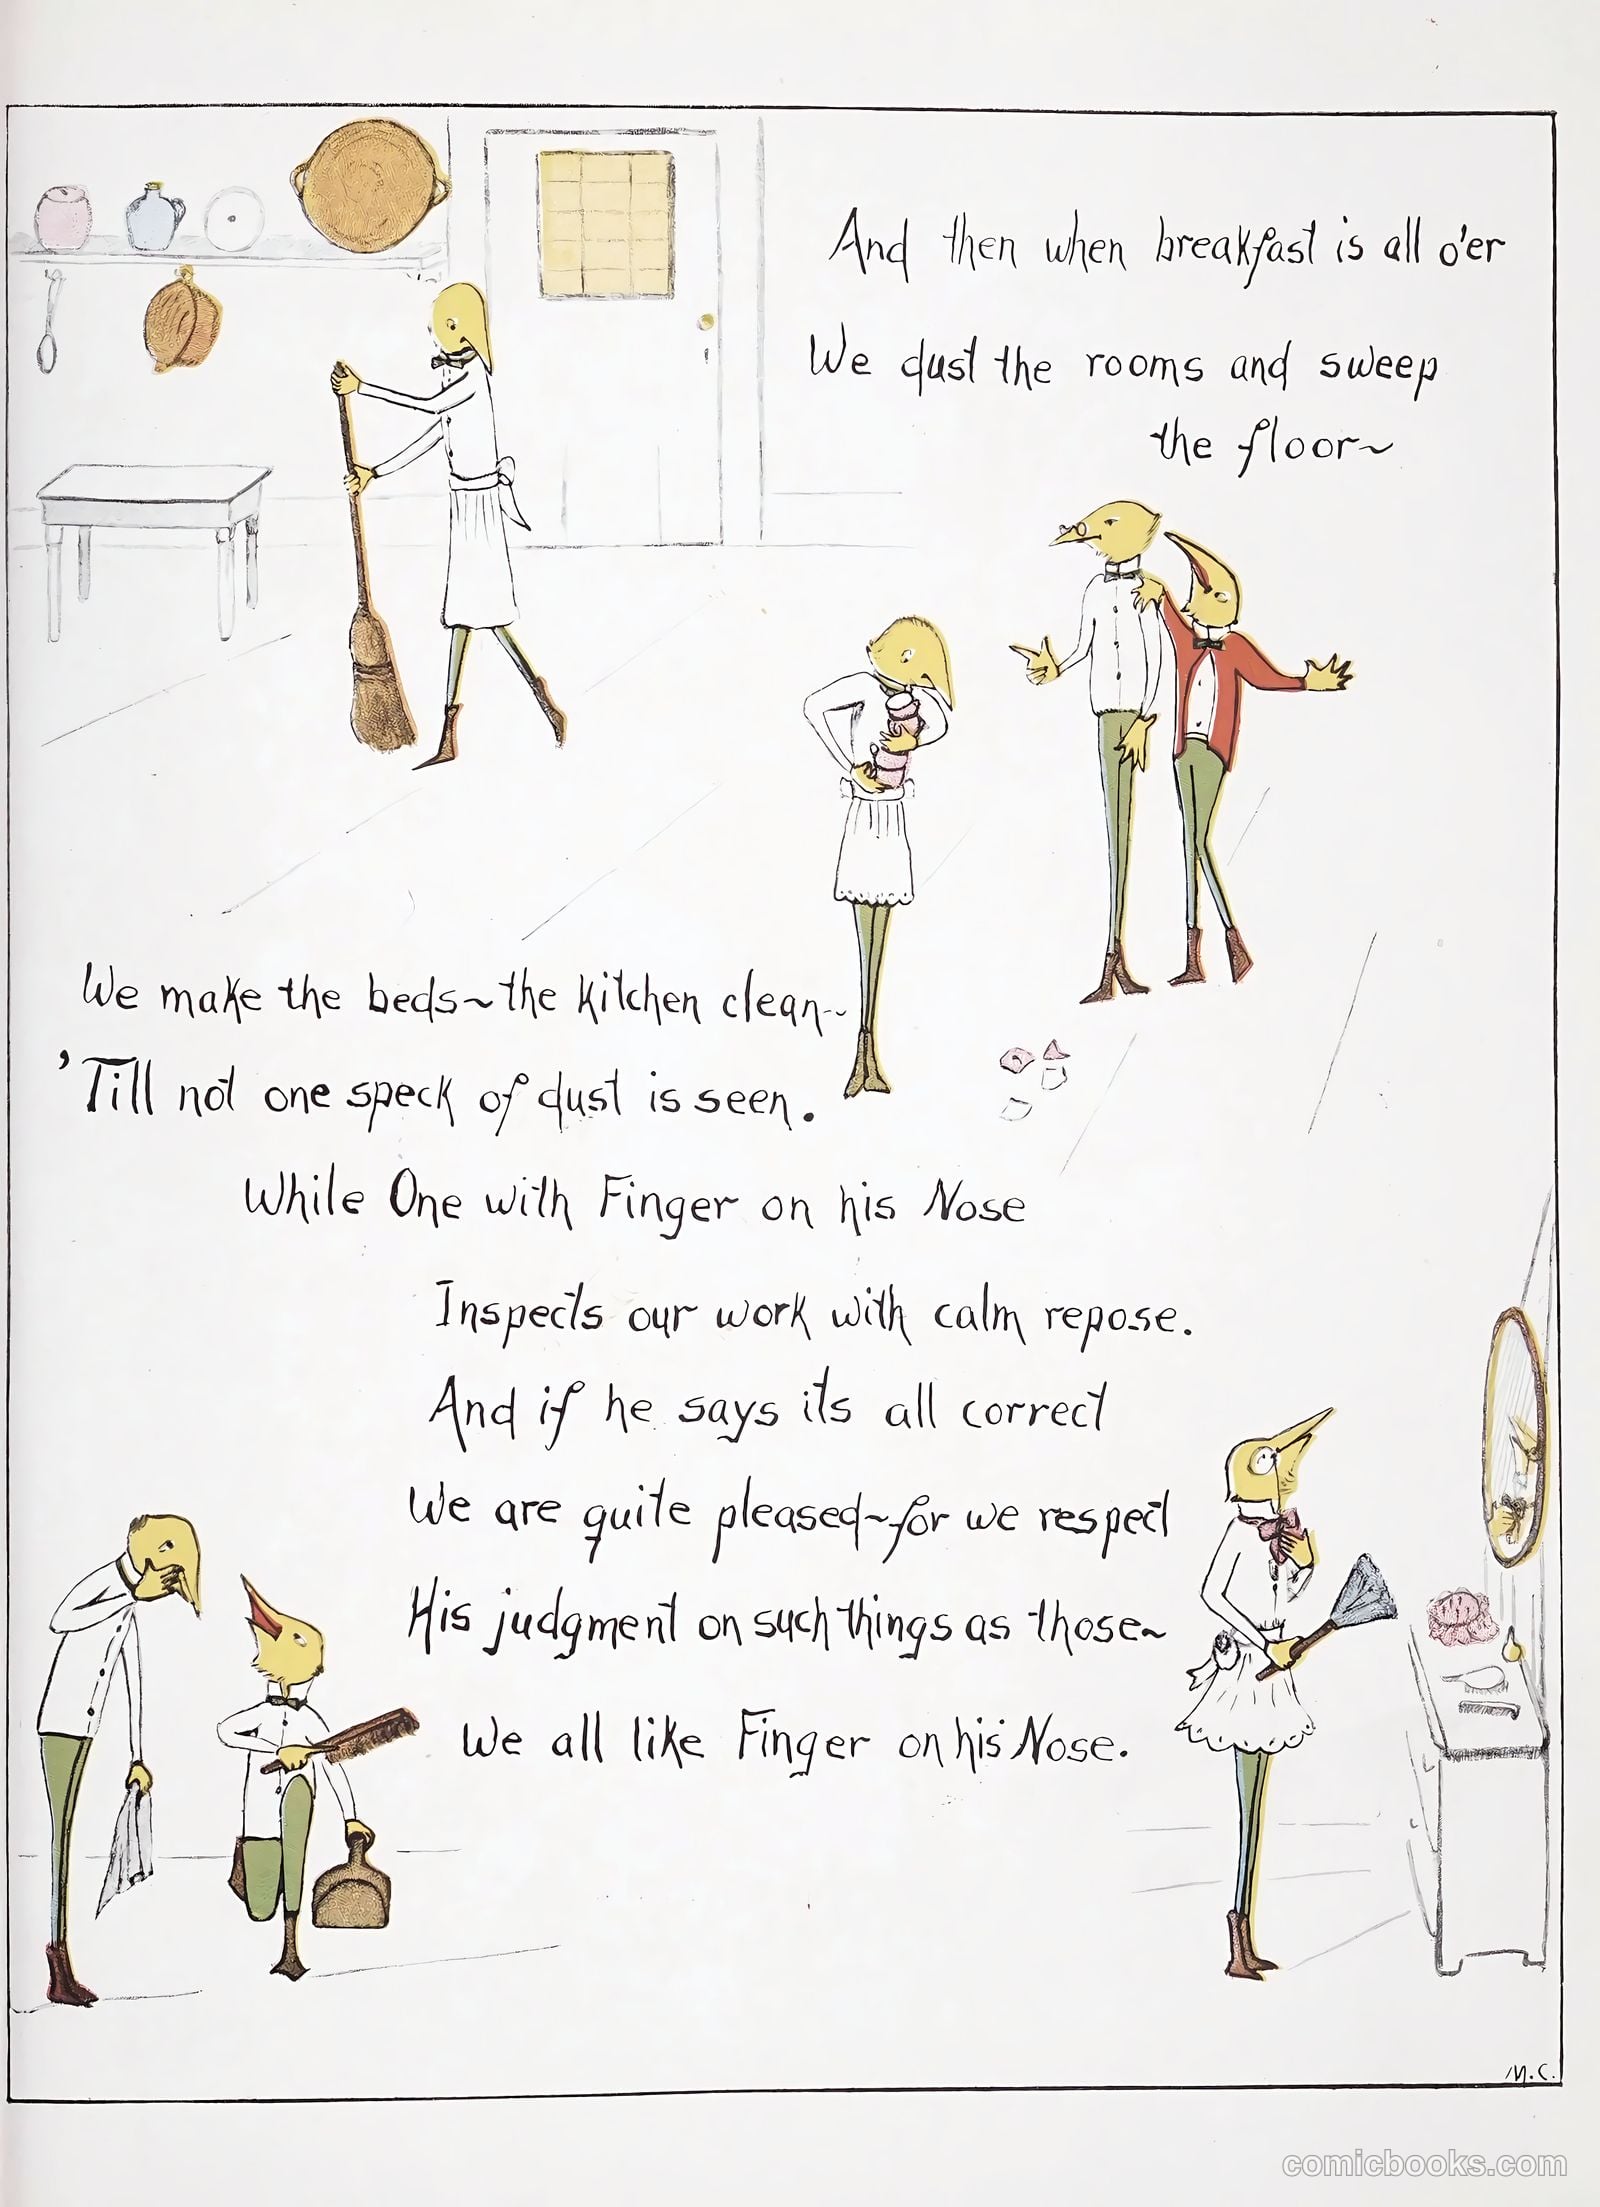 And then when breakfast is all o'er
We dust the rooms and sweep
the floor~
We make the beds~the kitchen clean~
'Till not one speck of dust is seen.
While One with Finger on his Nose
Inspects our work with calm repose.
And if he says its all correct
We are quite pleased~for we respect
His judgment on such things as those~
We all like Finger on his Nose.
M.C.
comicbooks.com